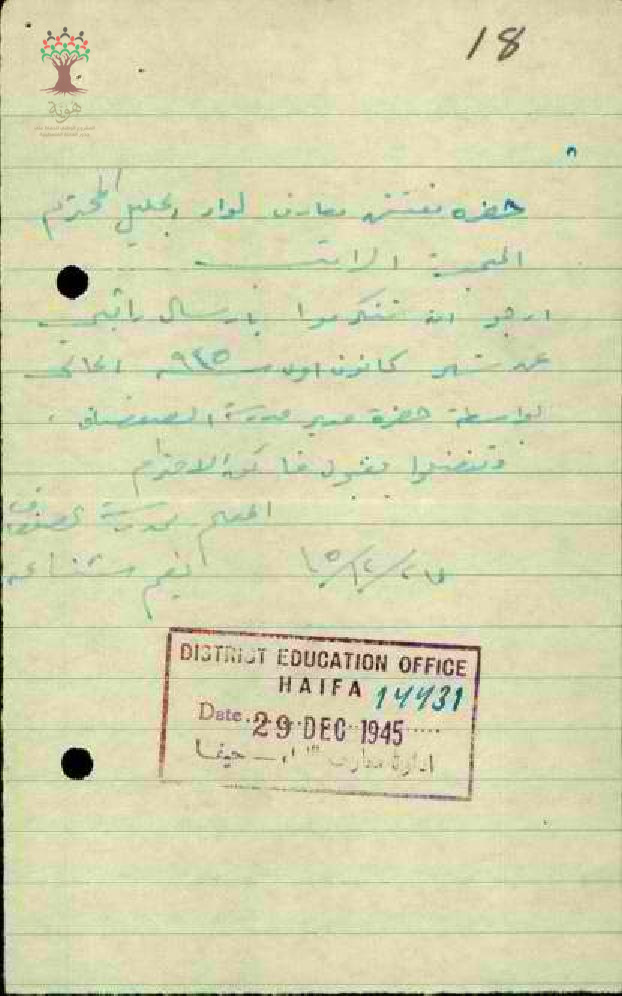 18
هوية
حضرة مفتش معارف لواء الجليل المحترم
الراتب
ارجو ان تتكرموا بارسال راتبي
عن شهر كانون اول سنة ٩٤٥ الحالي
بواسطة حضرة مدير مدرسة
وتفضلوا بقبول فائق الاحترام
المعلم بمدرسة
DISTRICT EDUCATION OFFICE
HAIFA 14431
Date 29 DEC 1945
ادارة معارف اللواء - حيفا